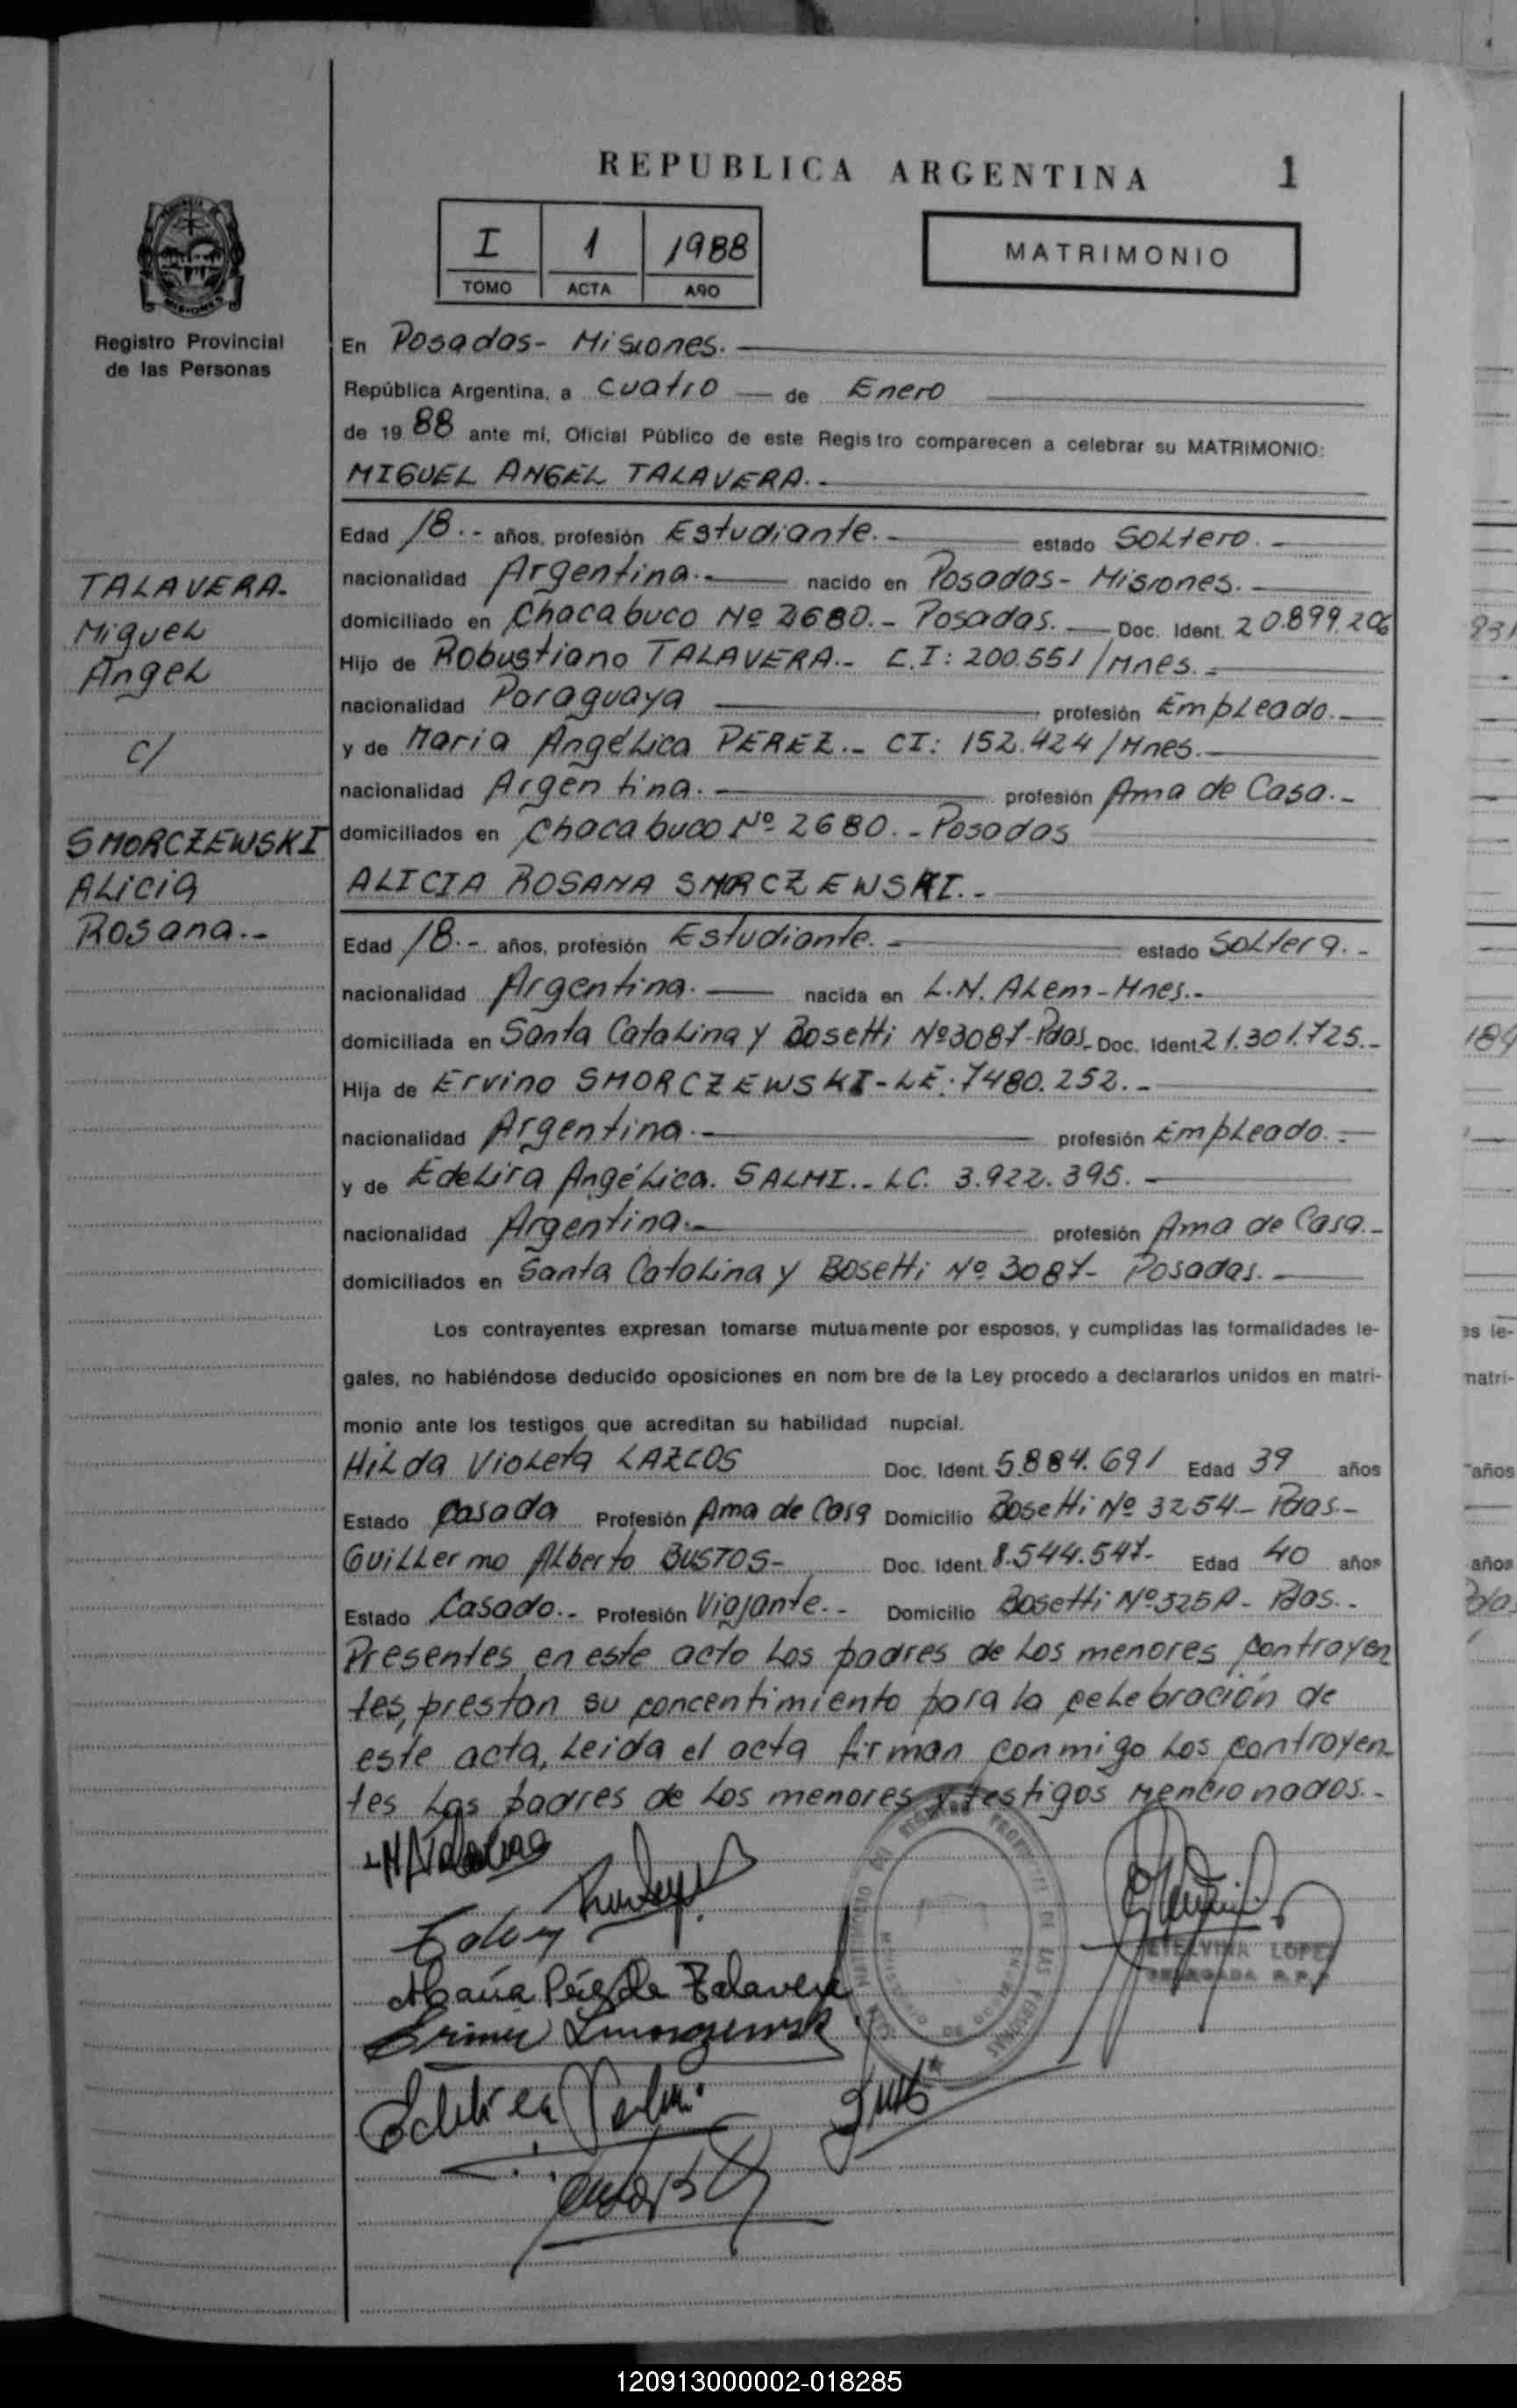 REPUBLICA ARGENTINA 1
I 1 1988
TOMO ACTA AÑO
MATRIMONIO
Registro Provincial
de las Personas
En Posadas- Misiones.
República Argentina, a cuatro de Enero
de 1988 ante mí, Oficial Público de este Registro comparecen a celebrar su MATRIMONIO:
MIGUEL ANGEL TALAVERA.-
Edad 18.- años, profesión Estudiante.- estado Soltero.-
nacionalidad Argentina.- nacido en Posadas- Misiones.-
domiciliado en Chacabuco Nº 2680.- Posadas. Doc. Ident. 20.899.206
Hijo de Robustiano TALAVERA.- C.I: 200.551/Mnes.-
nacionalidad Paraguaya profesión Empleado.-
y de Maria Angélica PEREZ.- CI: 152.424/Mnes.-
nacionalidad Argentina.- profesión Ama de Casa.-
domiciliados en Chacabuco Nº 2680.- Posadas
ALICIA ROSANA SMORCZEWSKI.-
Edad 18.- años, profesión Estudiante.- estado Soltera.-
nacionalidad Argentina.- nacida en L.N. Alem-Mnes.-
domiciliada en Santa Catalina y Bosetti Nº3087-Pdas. Doc. Ident. 21.301.725.-
Hija de Ervino SMORCZEWSKI-LE: 7480.252.-
nacionalidad Argentina.- profesión Empleado.-
y de Edelira Angélica. SALMI.- LC. 3.922.395.-
nacionalidad Argentina.- profesión Ama de Casa.-
domiciliados en Santa Catalina y Bosetti Nº 3087- Posadas.-
Los contrayentes expresan tomarse mutuamente por esposos, y cumplidas las formalidades le-
gales, no habiéndose deducido oposiciones en nombre de la Ley procedo a declararlos unidos en matri-
monio ante los testigos que acreditan su habilidad nupcial.
Hilda Violeta LAZCOS Doc. Ident. 5.884.691 Edad 39 años
Estado Casada Profesión Ama de Casa Domicilio Bosetti Nº 3254- Pdas.-
Guillermo Alberto BUSTOS- Doc. Ident. 8.544.547- Edad 40 años
Estado Casado.- Profesión Viajante.- Domicilio Bosetti Nº - Pdas.-
Presentes en este acto los padres de los menores contrayen
tes, prestan su concentimiento para la celebración de
este acta, leida el acta firman conmigo los contrayen-
tes los padres de los menores y testigos mencionados.-
Maria Pérez de Talavera
ETELVINA LOPEZ
DELEGADA R.P.P.
TALAVERA.
Miguel
Angel
c/
SMORCZEWSKI
Alicia
Rosana.-
es le-
matri-
años
años
120913000002-018285